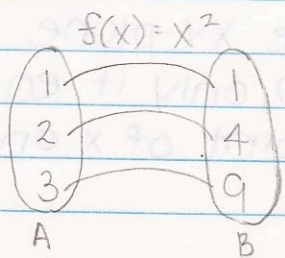 f(x) = x²
1 1
2 4
3 9
A B